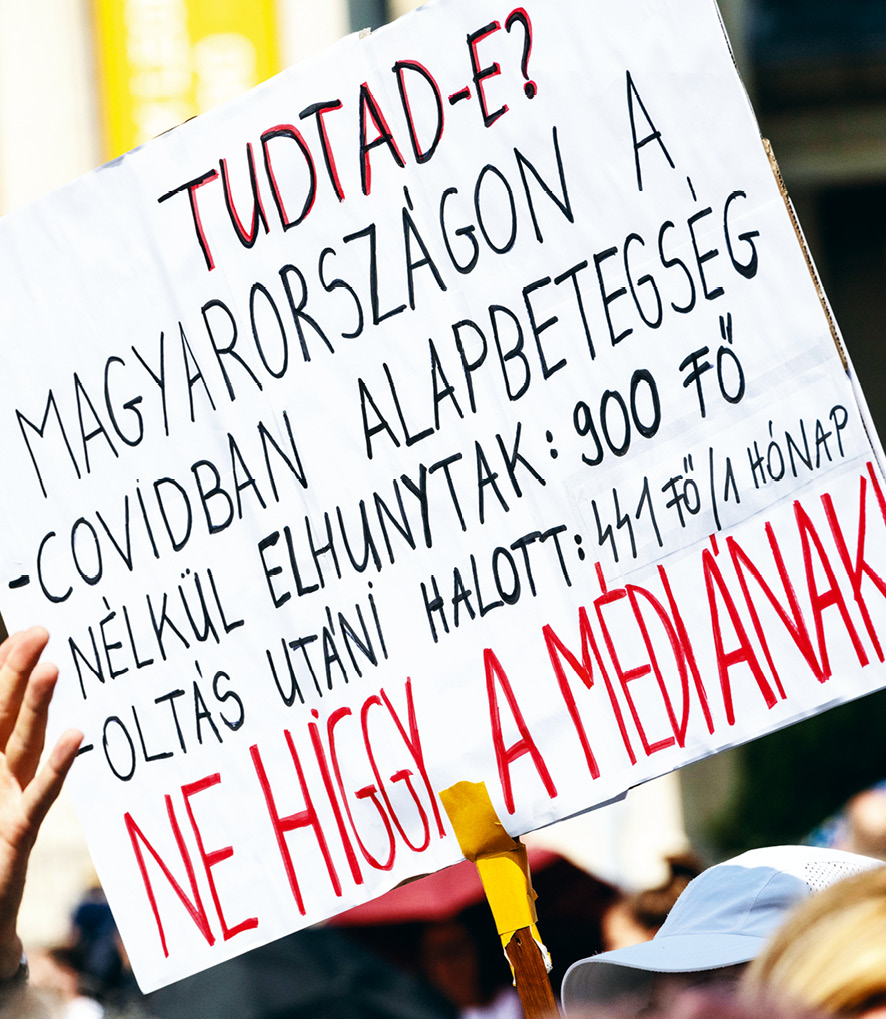 TUDTAD-E?
MAGYARORSZÁGON A
-COVIDBAN ALAPBETEGSÉG
NÉLKÜL ELHUNYTAK: 900 FŐ
-OLTÁS UTÁNI HALOTT: 441 FŐ/1 HÓNAP
NE HIGGY A MÉDIÁNAK!